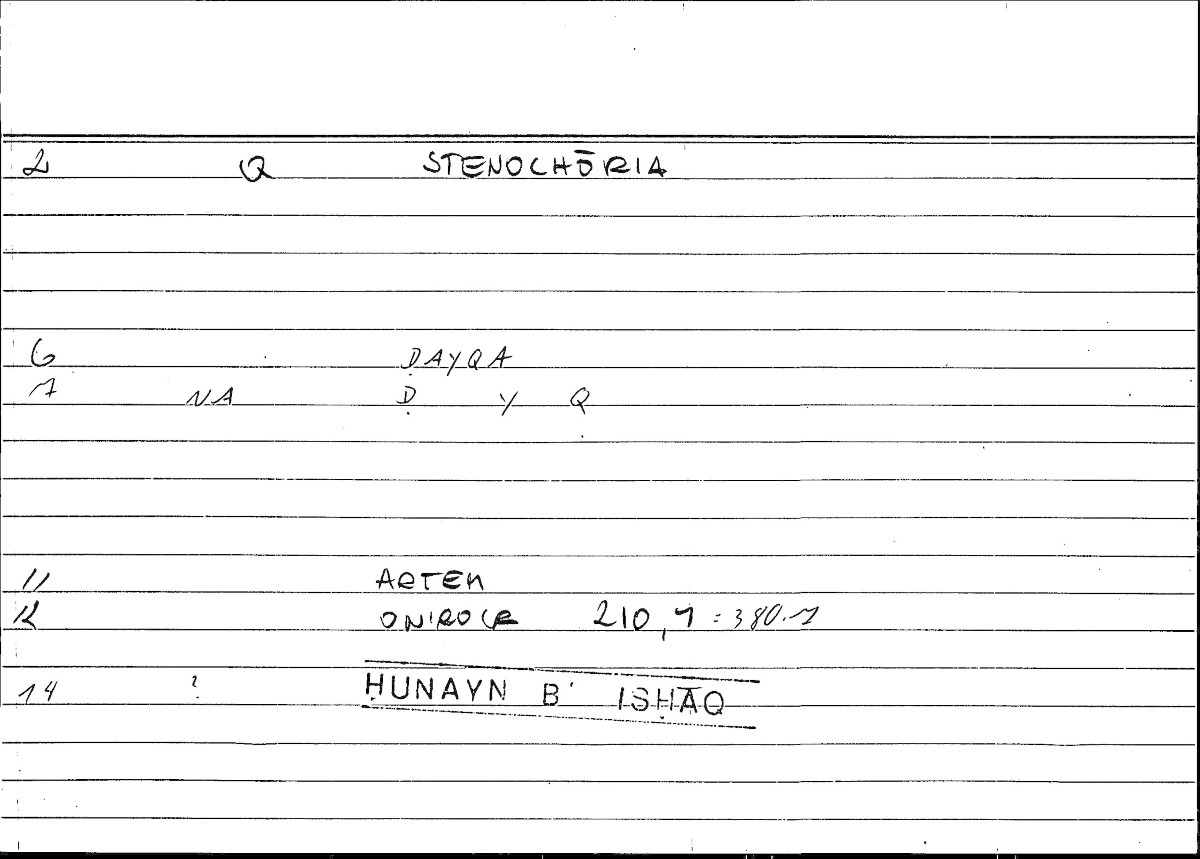 2 Q STENOCHŌRIA
6 ḌAYQA
7 NA Ḍ Y Q
11 ARTEM
12 ONIROCR 210,7 = 380.7
14 ? ḤUNAYN B' ISḤĀQ